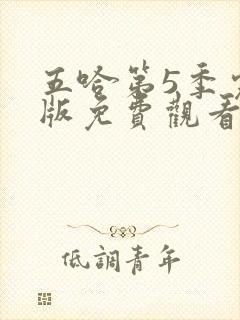 五哈第5季
版免費觀看
低調青年